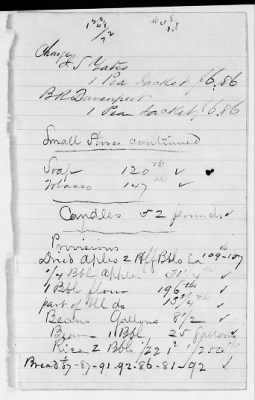 Charge
J S Yates
1 Pea Jacket, $6,86
B R Davenport
1 Pea Jacket, $6,86
Small Stores continued
Soap 120 lb ✓
Tobacco 147 lb ✓
Candles 52 pounds ✓
Provisions
Dried Aples 2 Hlf Bbls Ea 109-107 lb
1/4 Bbl Apples 31 1/4 ✓
1 Bbl flour 196 lbs ✓
part of Bbl do 15 3/4 lb ✓
Beans Gallons 8 1/2 ✓
Beans 1 Bbl 25 Gallons ✓
Rice 2 Bbls
Bread 87-87-91.92-86-81-92 ✓